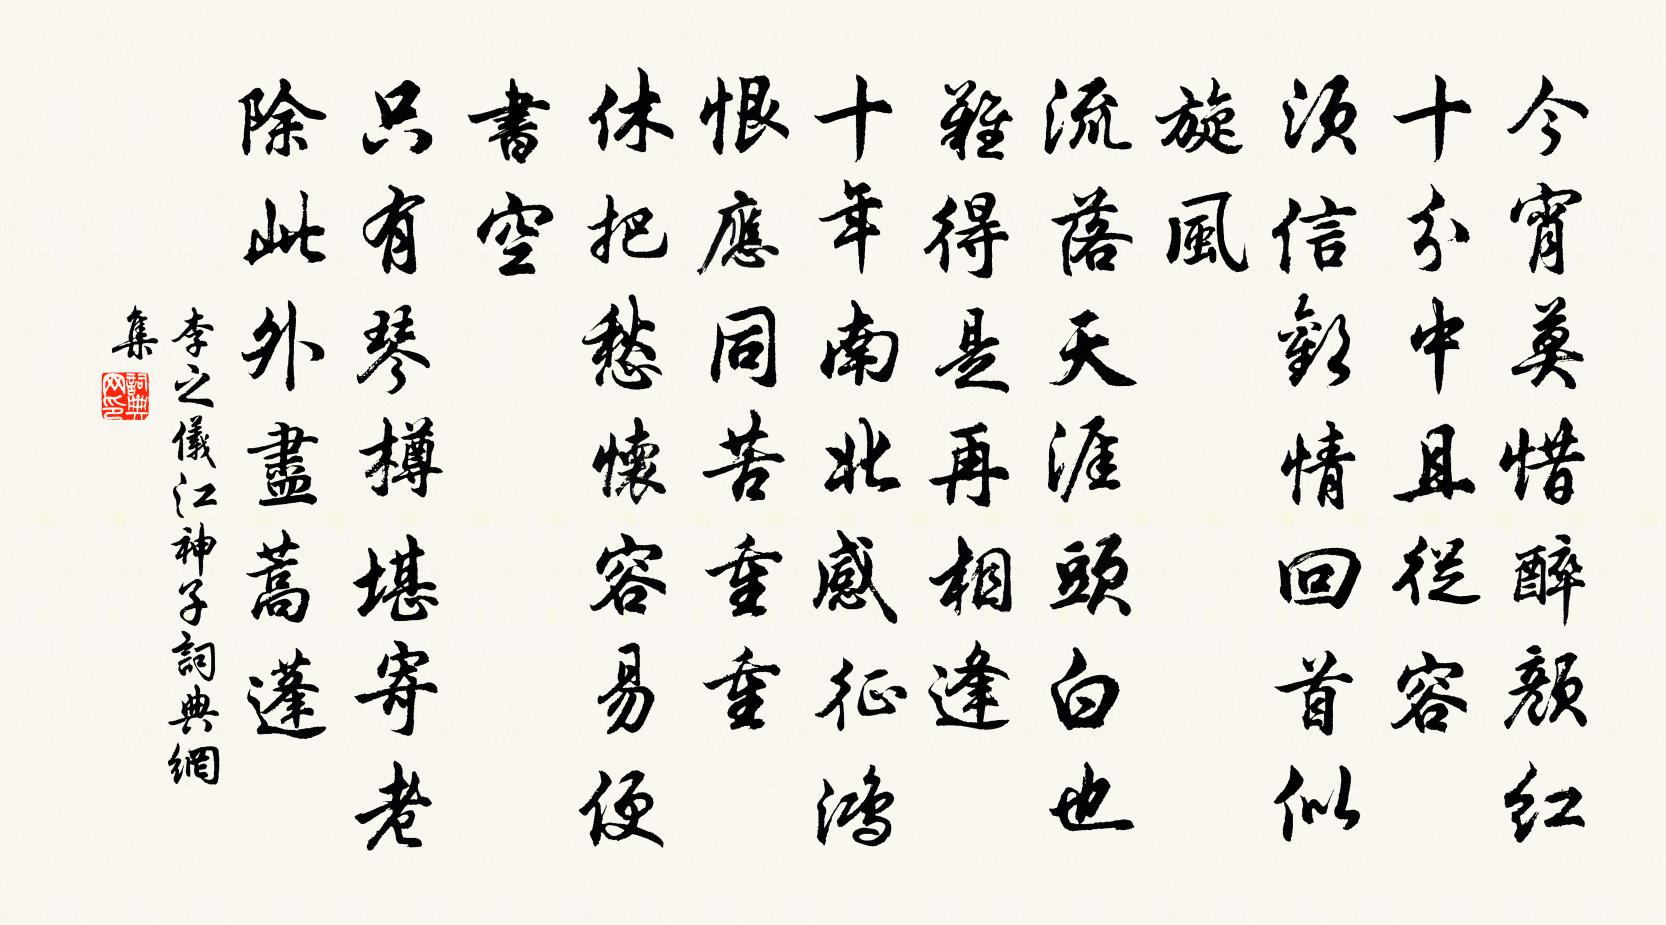 今宵莫惜醉顏紅
十分中且從容
須信歡情回首似
旋風
流落天涯頭白也
難得是再相逢
十年南北感征鴻
恨應同苦重重
休把愁懷容易便
書空
只有琴樽堪寄老
除此外盡蒿蓬
李之儀江神子詞典網
集
詞典網印